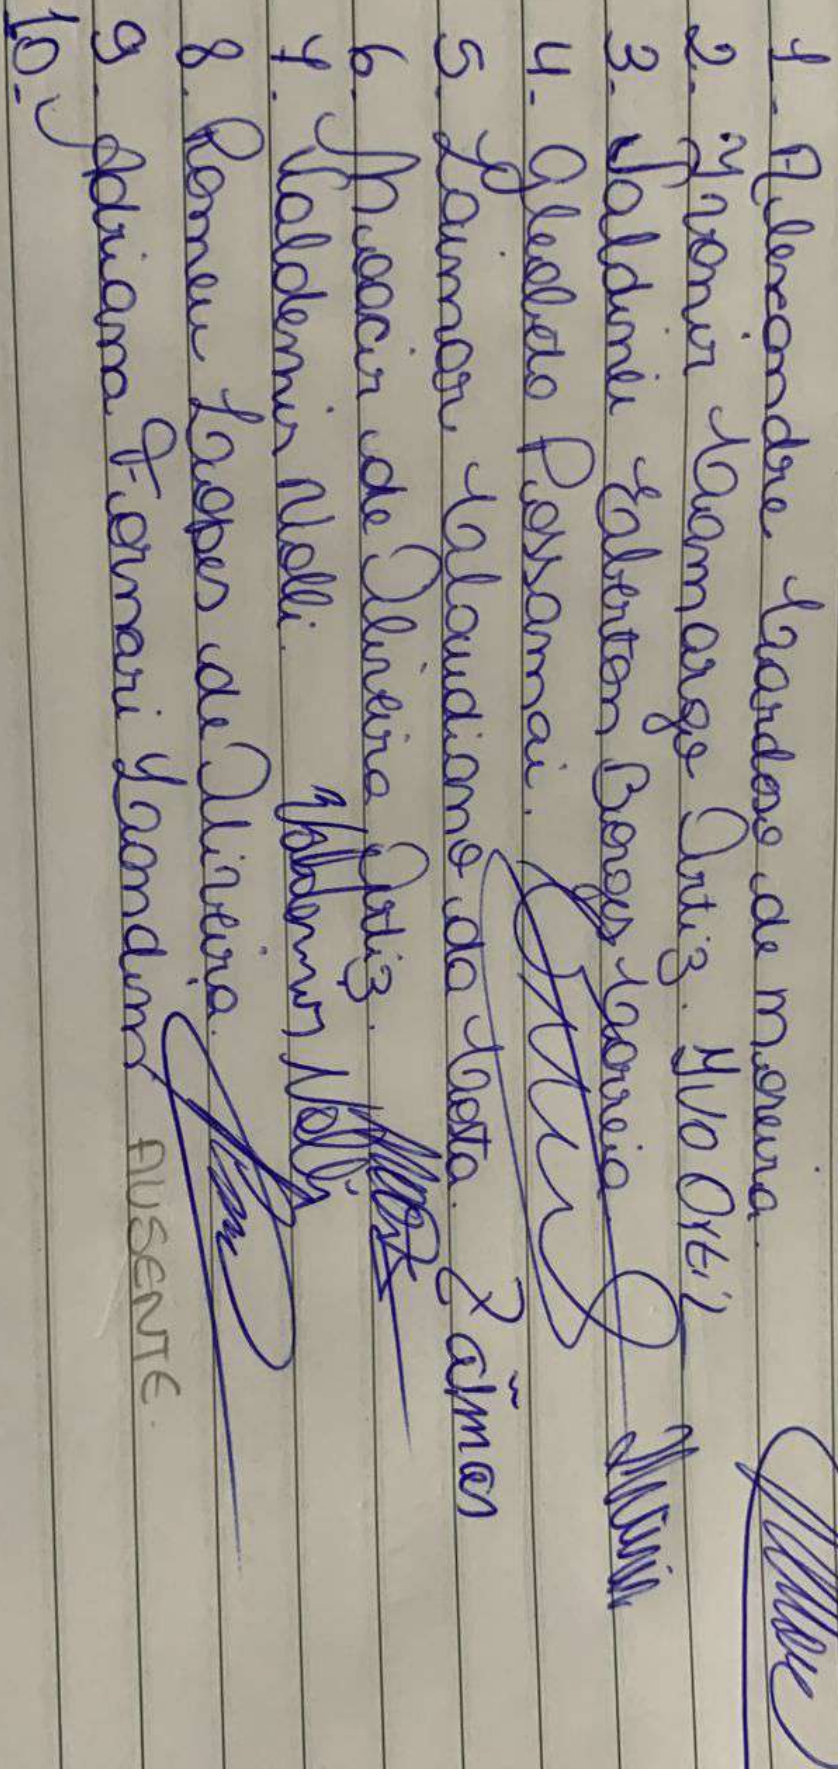 1- Alexandre Cardoso de moreira.
2- Yvonir Camargo Ortiz. Yvo Ortiz
3- Valdinei Eberton Borges Correia
4- Cleobeto Possamai.
5. Laimar Claudiano da Costa. Laimar
6. Moacir de Oliveira Ortiz.
7. Valdemir Nolli. Valdemir Nolli
8. Romeu Lopes de Oliveira.
9. Adriana Fornari Landim AUSENTE.
10-